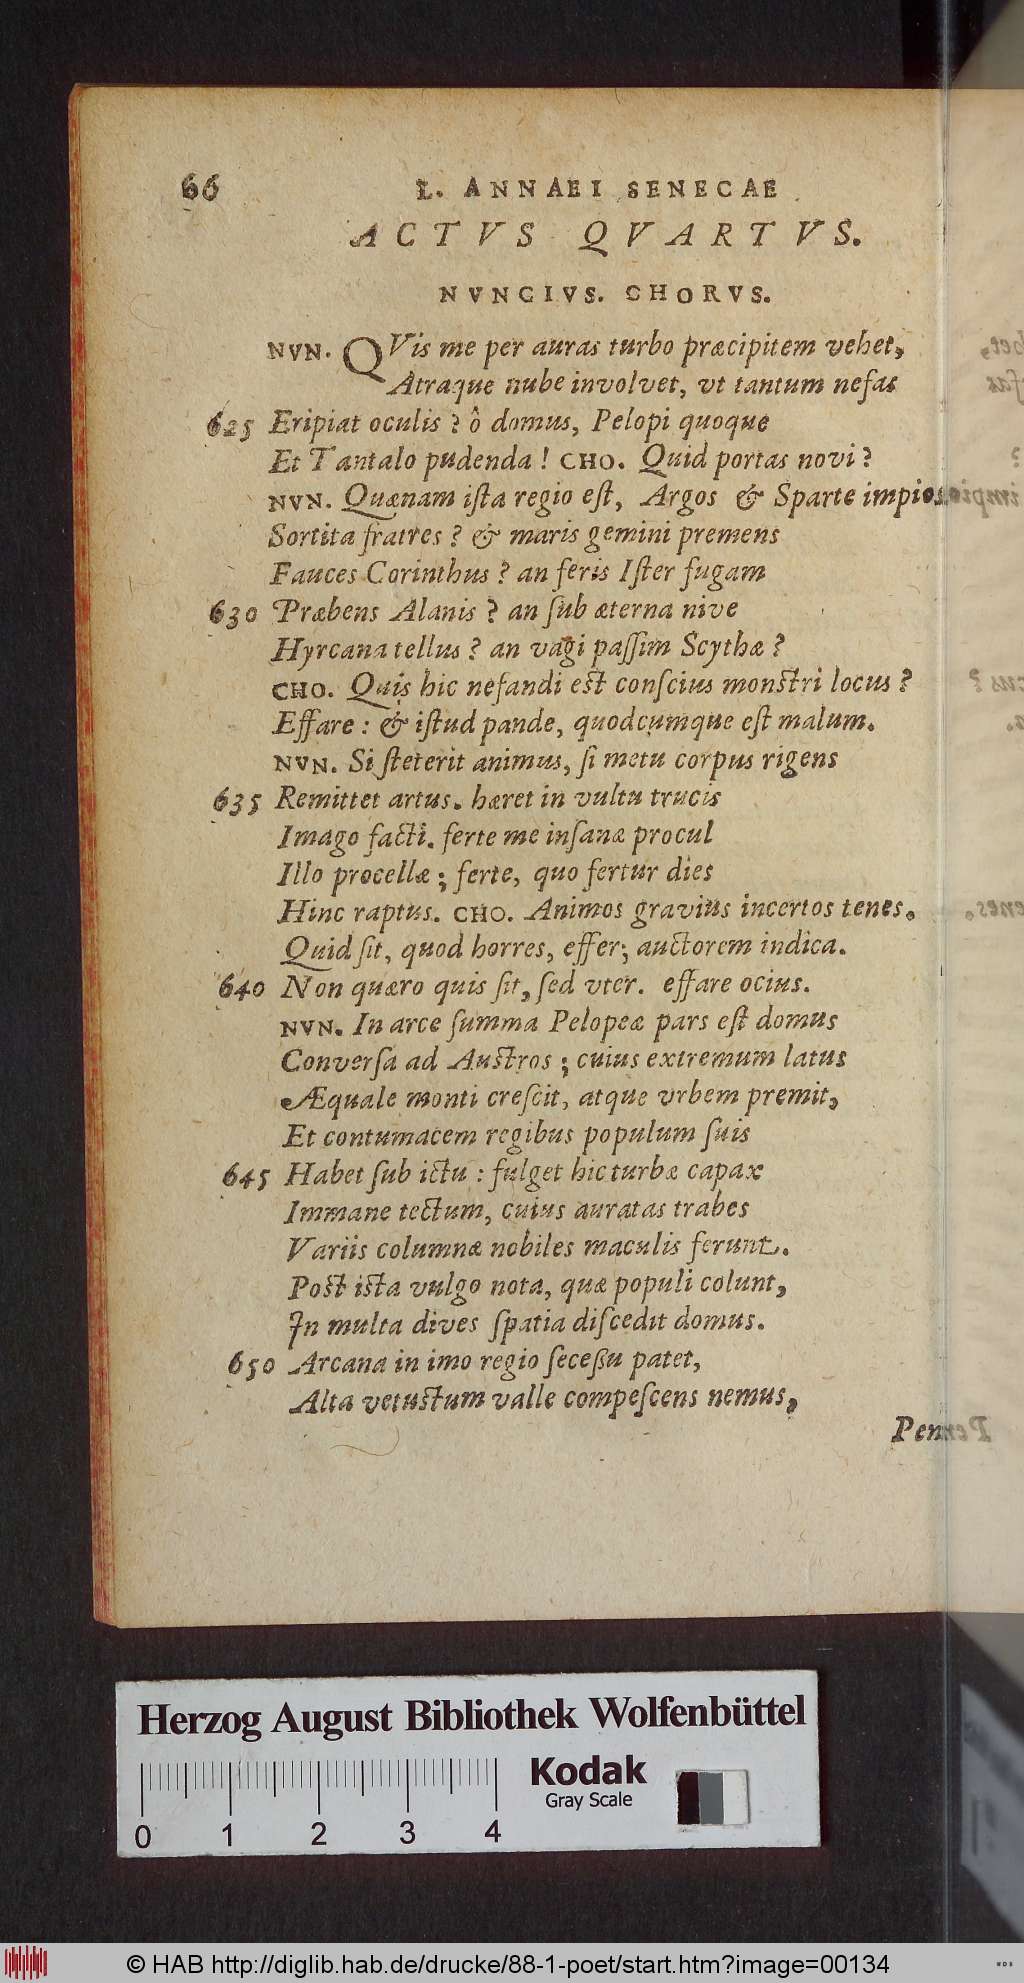 66 L. ANNAEI SENECAE
ACTVS QVARTVS.
NVNCIVS. CHORVS.
NVN. QVis me per auras turbo præcipitem vehet,
Atraque nube involvet, vt tantum nefas
625 Eripiat oculis? ô domus, Pelopi quoque
Et Tantalo pudenda! CHO. Quid portas novi?
NVN. Quænam iſta regio eſt, Argos & Sparte impios
Sortita fratres? & maris gemini premens
Fauces Corinthus? an feris Iſter fugam
630 Præbens Alanis? an ſub æterna nive
Hyrcana tellus? an vagi paſſim Scythæ?
CHO. Quis hic nefandi eſt conſcius monſtri locus?
Effare: & iſtud pande, quodcumque eſt malum.
NVN. Si ſteterit animus, ſi metu corpus rigens
635 Remittet artus. hæret in vultu trucis
Imago facti. ferte me inſanæ procul
Illo procellæ; ferte, quo fertur dies
Hinc raptus. CHO. Animos gravius incertos tenes.
Quid ſit, quod horres, effer; auctorem indica.
640 Non quæro quis ſit, ſed vter. effare ocius.
NVN. In arce ſumma Pelopeæ pars eſt domus
Converſa ad Auſtros; cuius extremum latus
Æquale monti creſcit, atque vrbem premit,
Et contumacem regibus populum ſuis
645 Habet ſub ictu: fulget hic turbæ capax
Immane tectum, cuius auratas trabes
Variis columnæ nobiles maculis ferunt.
Poſt iſta vulgo nota, quæ populi colunt,
In multa dives ſpatia diſcedit domus.
650 Arcana in imo regio ſeceßu patet,
Alta vetuſtum valle compeſcens nemus,
Pene
Herzog August Bibliothek Wolfenbüttel
Kodak
Gray Scale
0 1 2 3 4
© HAB http://diglib.hab.de/drucke/88-1-poet/start.htm?image=00134